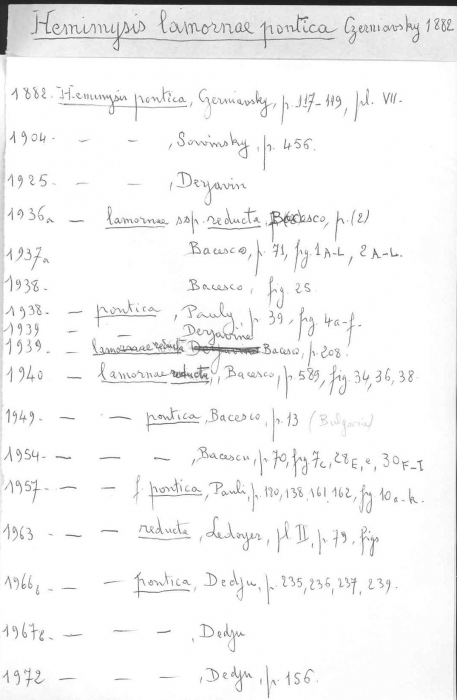 Hemimysis lamornae pontica Czerniavsky 1882
1882. Hemimysis pontica, Czerniavsky, p. 117-119, pl. VII.
1904. — — , Sowinsky, p. 456.
1925 - — — , Derjavin
1936a — lamornae ssp. reducta, Bacesco, p. (2)
1937a Bacesco, p. 71, fig. 1A-L, 2A-L.
1938 - Bacesco, fig. 25
1938 - — pontica, Pauly, p. 39, fig 4a-f.
1939 — — Derjavine
1939. — lamornae reducta Bacesco, p. 208.
1940 — lamornae reducta, Bacesco, p. 589, fig. 34, 36, 38
1949. — — pontica, Bacesco, p. 13 (Bulgaria)
1954 — — — , Bacescu, p. 70, fig 7c, 28E, e, 30F-I
1957 — — f. pontica, Pauli, p. 120, 138, 161, 162, fig 10a-k.
1963 — — reducta, Ledoyer, pl. II, p. 79. figs
1966b — — pontica, Dedju, p. 235, 236, 237, 239.
1967b — — — , Dedju
1972 — — — , Dedju, p. 156.